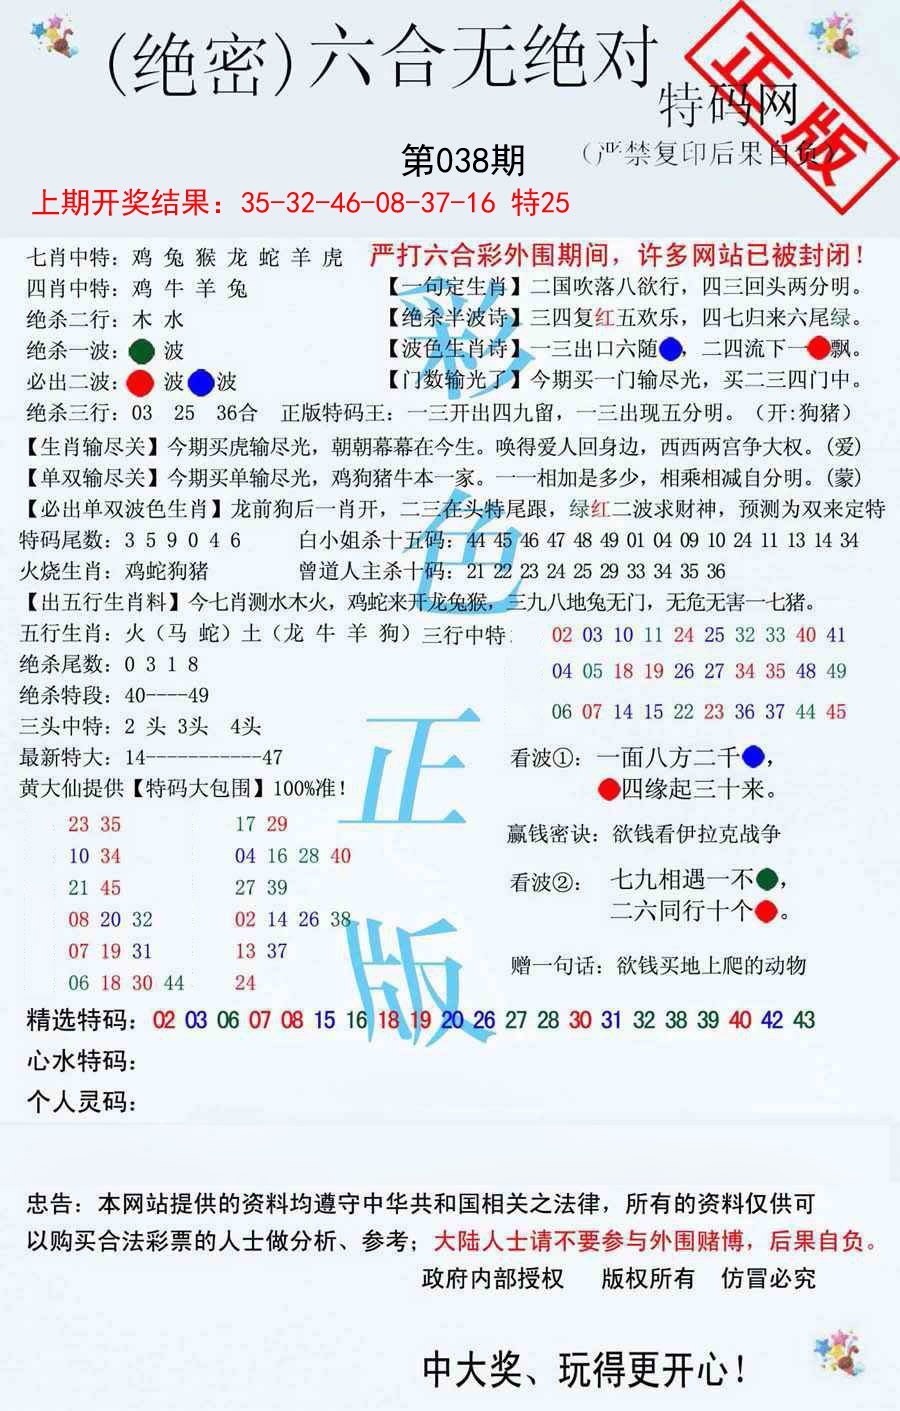 (绝密)六合无绝对
特码网
正版
第038期
(严禁复印后果自负)
上期开奖结果：35-32-46-08-37-16 特25
七肖中特：鸡 兔 猴 龙 蛇 羊 虎
严打六合彩外围期间，许多网站已被封闭！
四肖中特：鸡 牛 羊 兔
【一句定生肖】二国吹落八欲行，四三回头两分明。
绝杀二行：木 水
【绝杀半波诗】三四复红五欢乐，四七归来六尾绿。
绝杀一波： 波
【波色生肖诗】一三出口六随 ，二四流下一 飘。
必出二波： 波 波
【门数输光了】今期买一门输尽光，买二三四门中。
绝杀三行：03 25 36合 正版特码王：一三开出四九留，一三出现五分明。（开:狗猪）
【生肖输尽关】今期买虎输尽光，朝朝幕幕在今生。唤得爱人回身边，西西两宫争大权。(爱)
【单双输尽关】今期买单输尽光，鸡狗猪牛本一家。一一相加是多少，相乘相减自分明。(蒙)
【必出单双波色生肖】龙前狗后一肖开，二三在头特尾跟，绿红二波求财神，预测为双来定特
特码尾数：3 5 9 0 4 6
白小姐杀十五码：44 45 46 47 48 49 01 04 09 10 24 11 13 14 34
火烧生肖：鸡蛇狗猪
曾道人主杀十码：21 22 23 24 25 29 33 34 35 36
【出五行生肖料】今七肖测水木火，鸡蛇来开龙兔猴，三九八地兔无门，无危无害一七猪。
五行生肖：火（马 蛇）土（龙 牛 羊 狗）三行中特：
02 03 10 11 24 25 32 33 40 41
绝杀尾数：0 3 1 8
04 05 18 19 26 27 34 35 48 49
绝杀特段：40----49
06 07 14 15 22 23 36 37 44 45
三头中特：2 头 3头 4头
最新特大：14-----------47
看波①：一面八方二千 ，
四缘起三十来。
黄大仙提供【特码大包围】100%准！
23 35 17 29
赢钱密诀：欲钱看伊拉克战争
10 34 04 16 28 40
21 45 27 39
看波②： 七九相遇一不 ，
二六同行十个 。
08 20 32 02 14 26 38
07 19 31 13 37
赠一句话：欲钱买地上爬的动物
06 18 30 44 24
彩色正版
精选特码：02 03 06 07 08 15 16 18 19 20 26 27 28 30 31 32 38 39 40 42 43
心水特码：
个人灵码：
忠告：本网站提供的资料均遵守中华共和国相关之法律，所有的资料仅供可
以购买合法彩票的人士做分析、参考；大陆人士请不要参与外围赌博，后果自负。
政府内部授权 版权所有 仿冒必究
中大奖、玩得更开心！